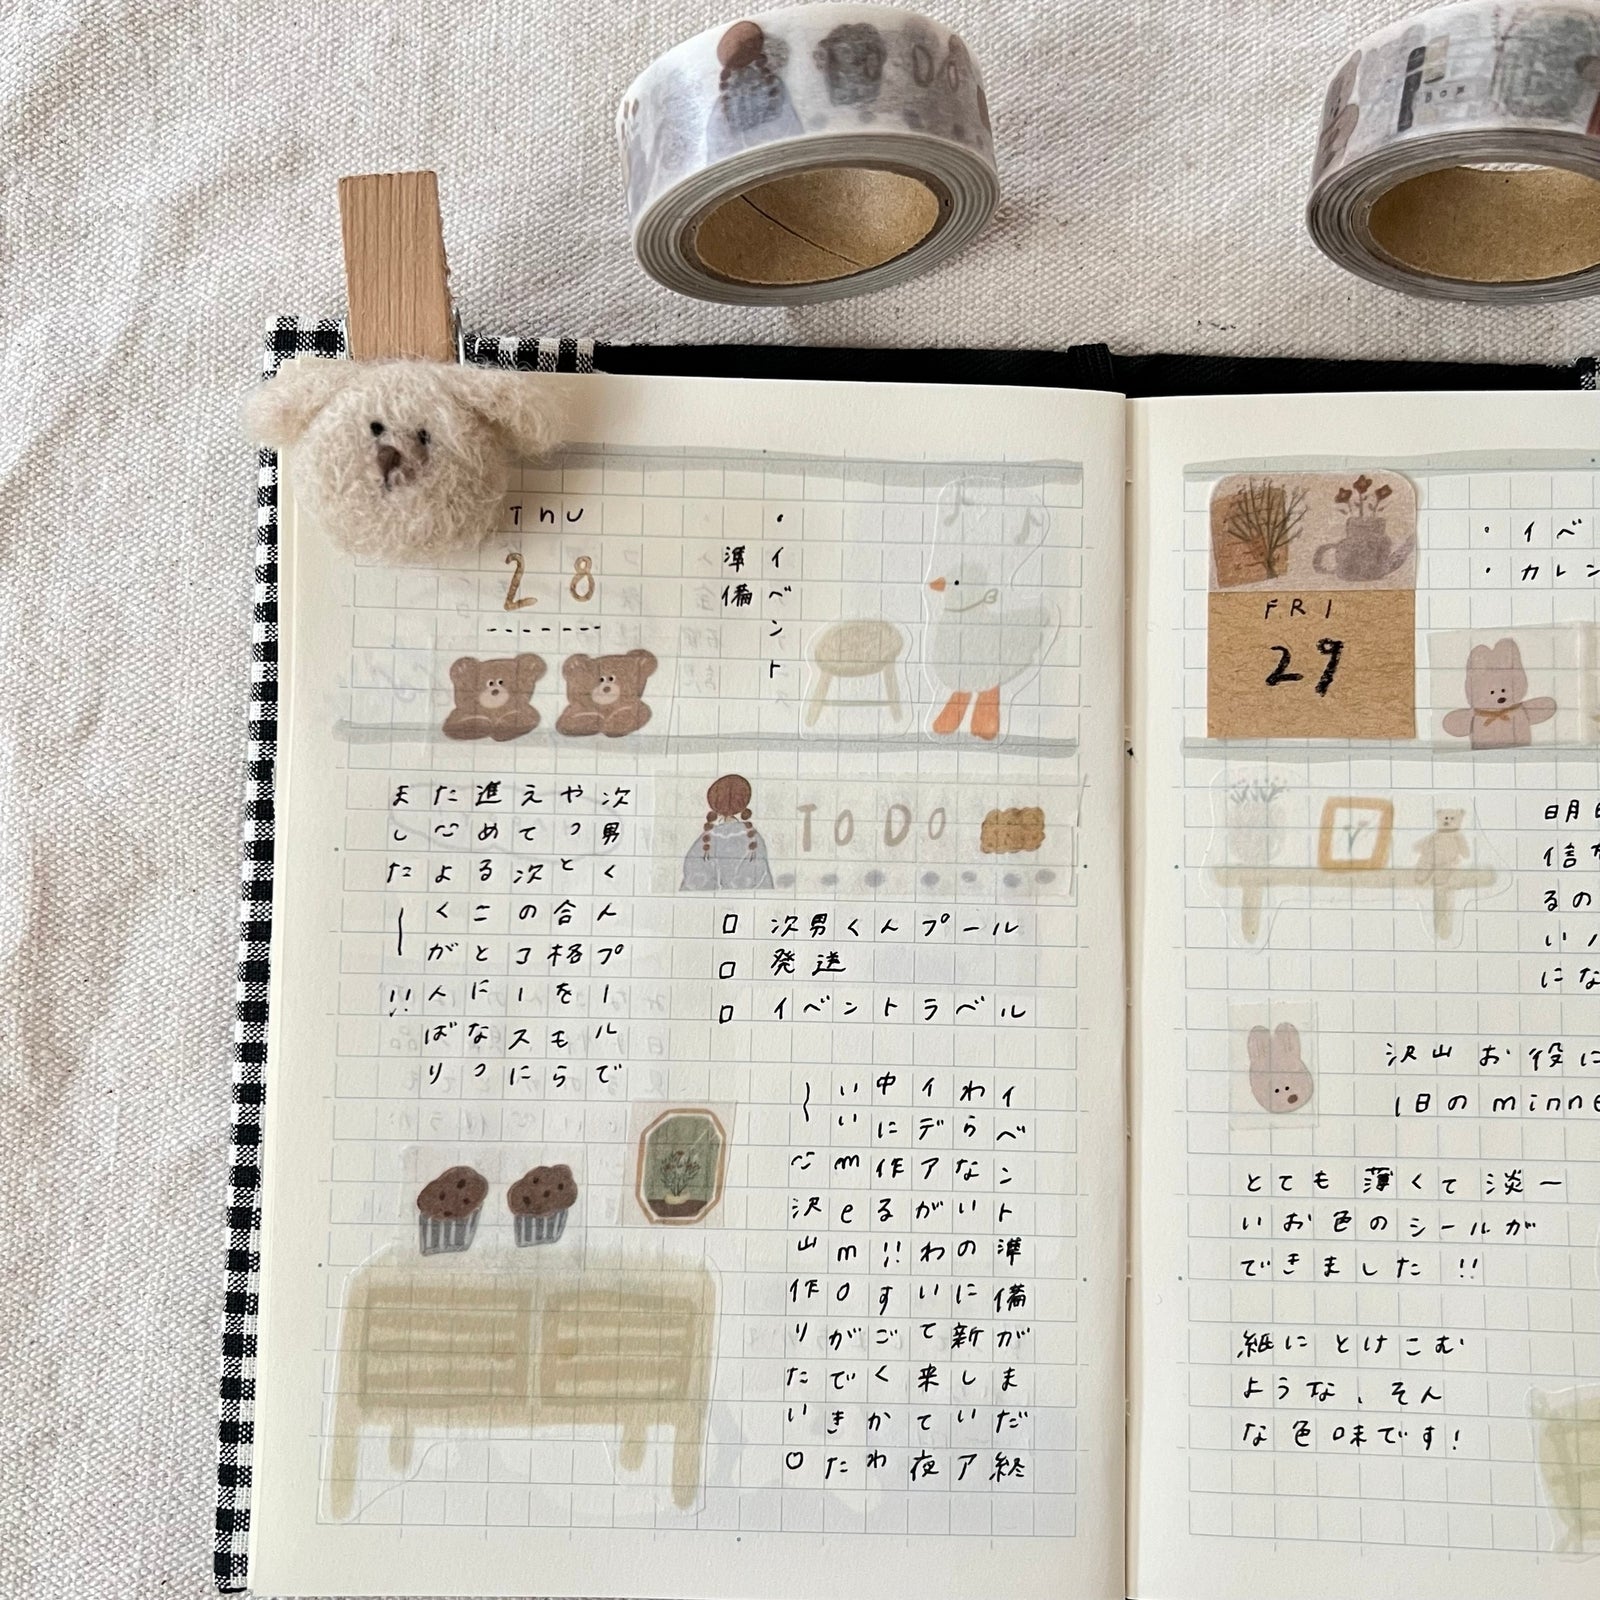 TO DO
Thu
28
・イベント
準備
次男くんプールで
やっと合格をもら
えて次のコースに
進めることになっ
たよくがんばり
ました〜!!
TO DO
□ 次男くんプール
□ 発送
□ イベントラベル
イベント準備がまだ終
わらないのに新しいア
イデアがわいて来て夜
中に作る!!すごくかわ
いいmemoができた
〜沢山作りたい♡
FRI
29
・イベ
・カレン
るの
にな
沢山お役に
1日のminne
とても薄くて淡〜
いお色のシールが
できました!!
紙にとけこむ
ような、そん
な色味です!